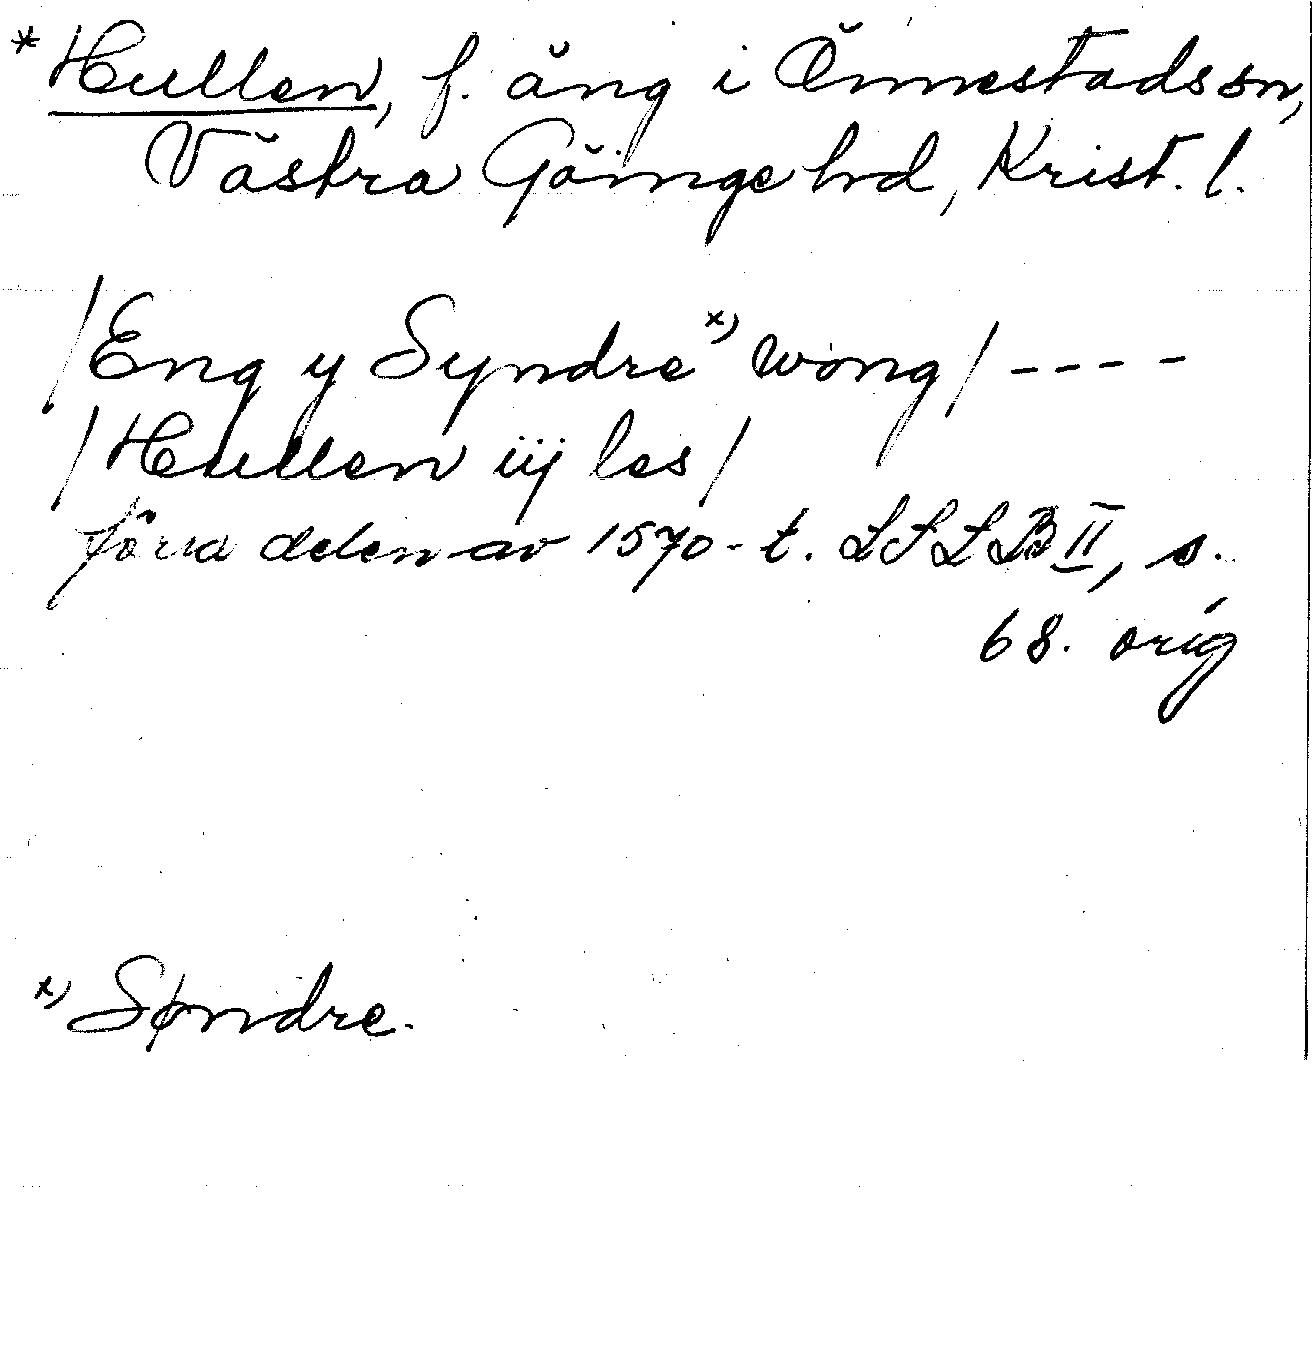 * Hullen, f. äng i Önnestads sn,
Västra Göinge hd, Krist. l.
/Eng y Syndre x) wong/ ----
/Hullen iij les/
förra delen av 1570-t. LSLB II, s.
68. orig
x) Søndre.